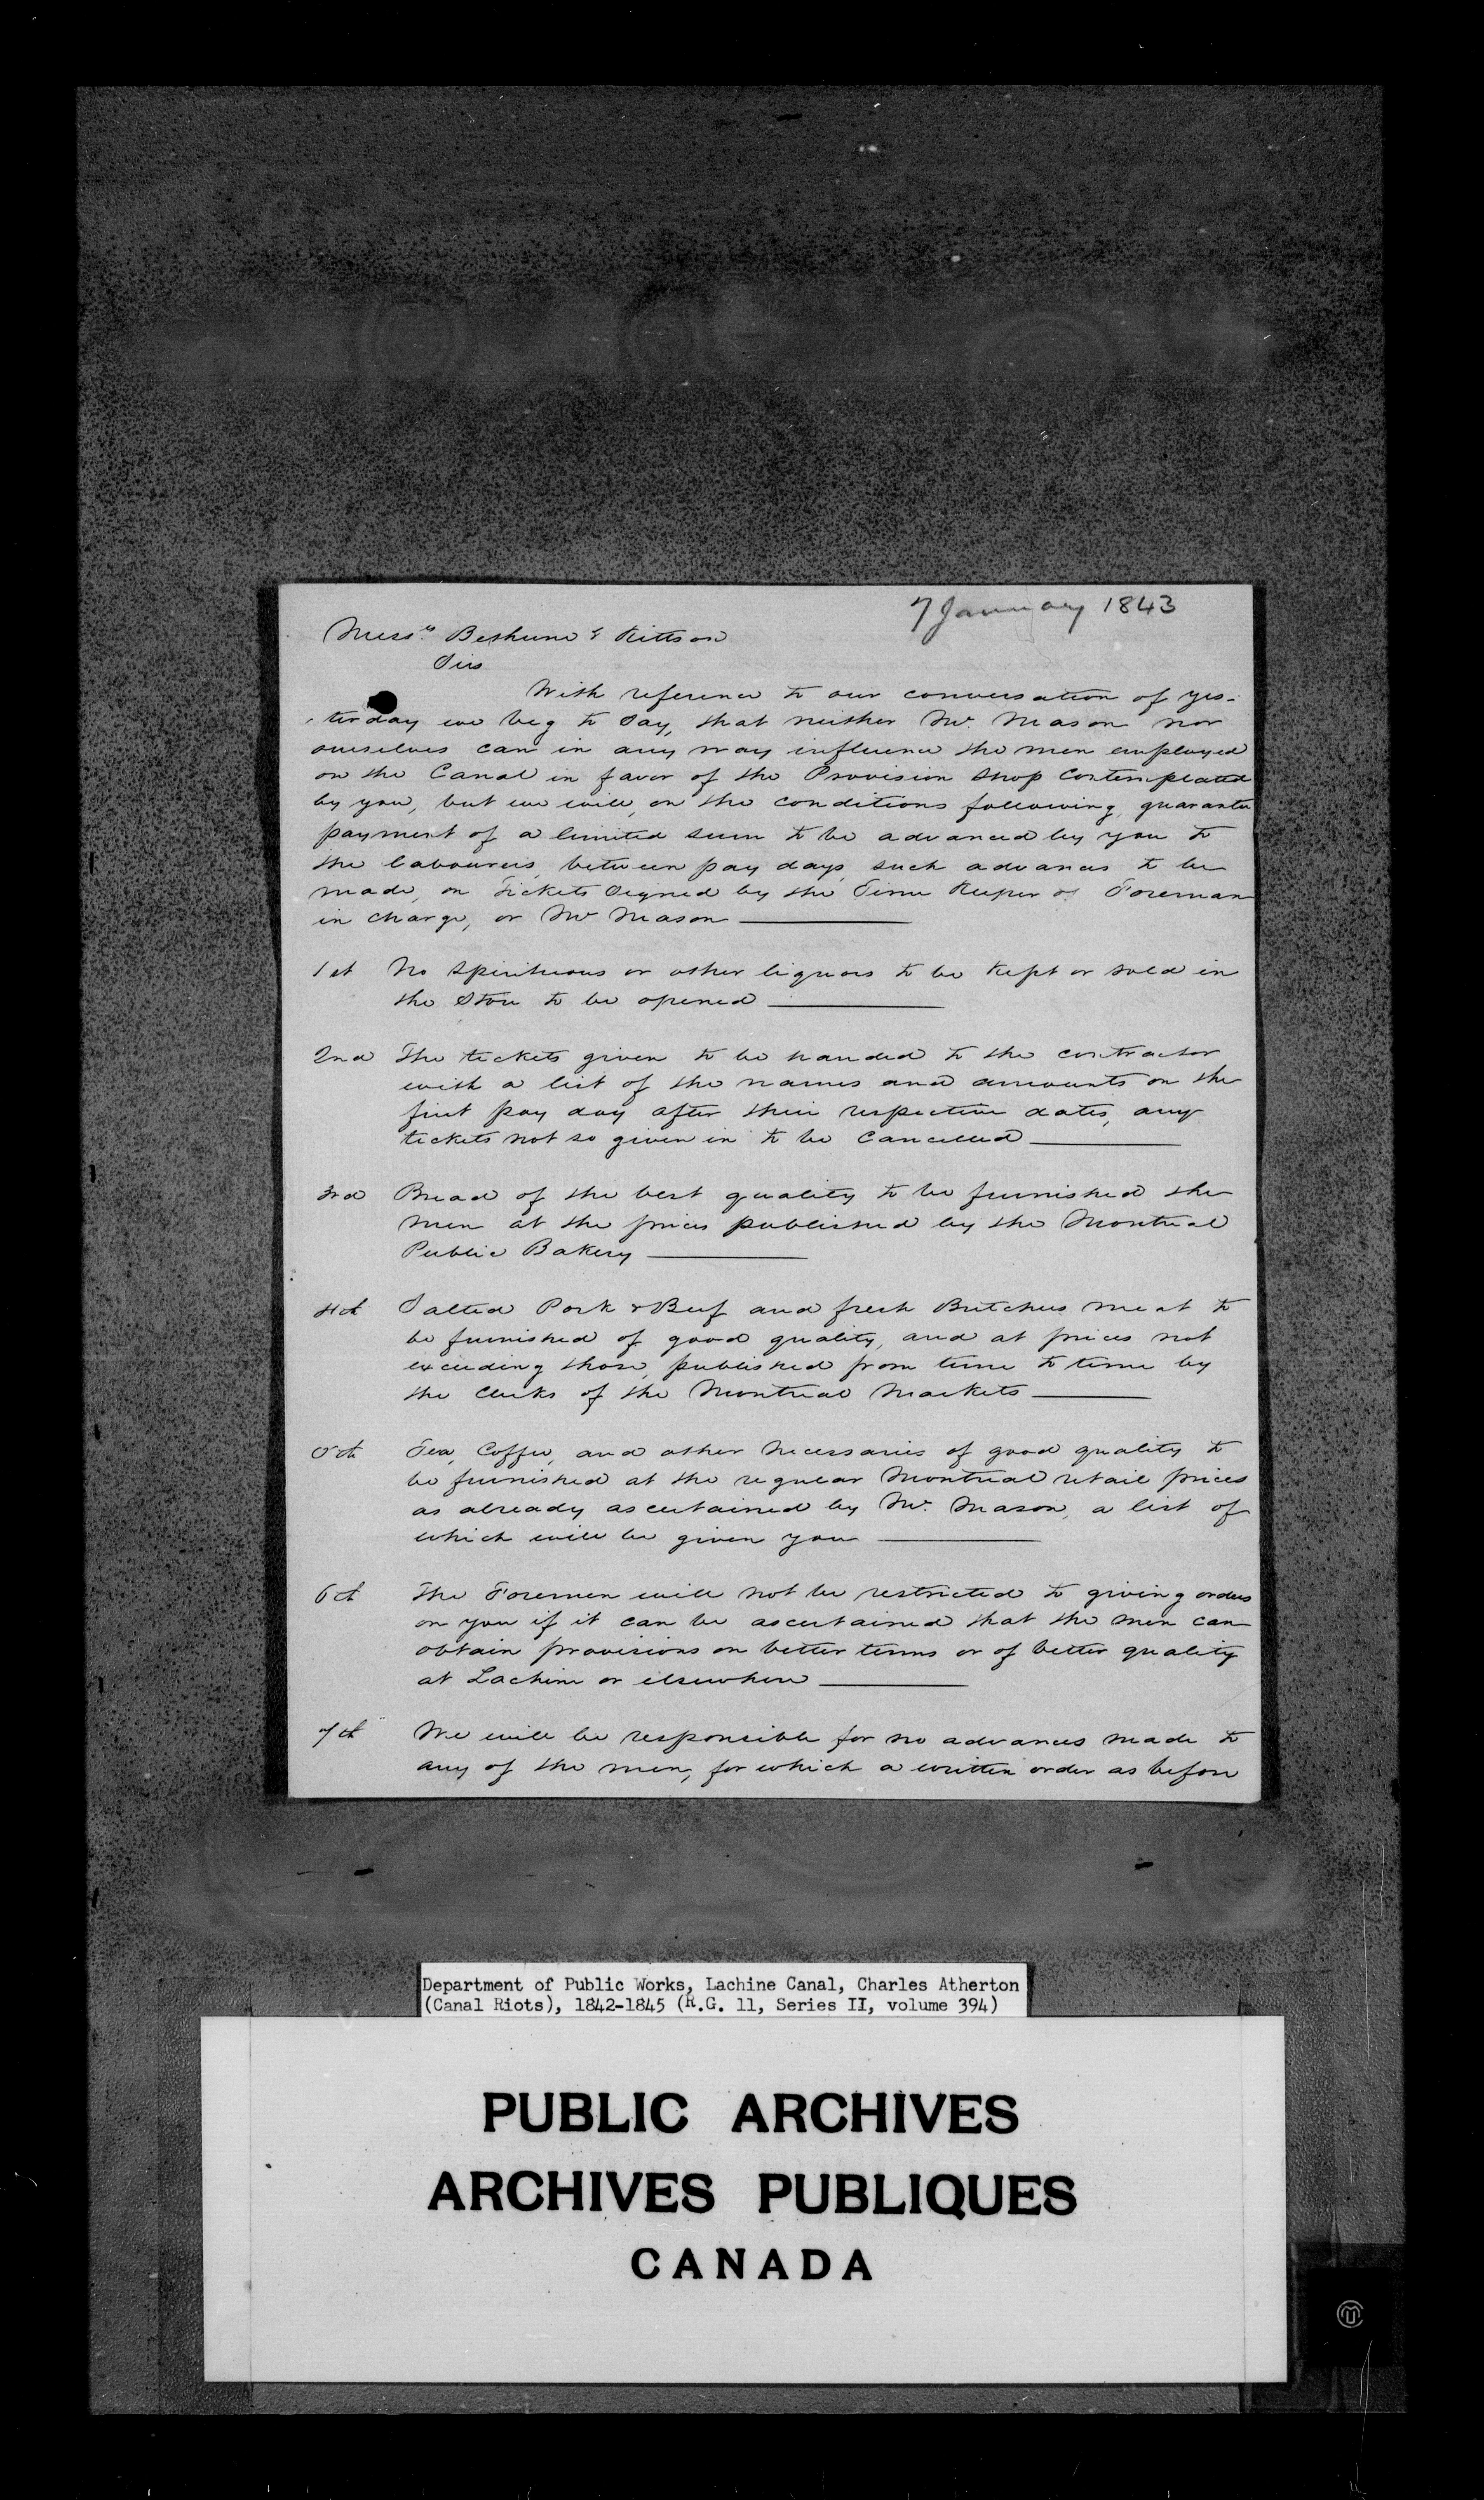 7 January 1843
Messrs. Bethune & Kittson
Sirs
With reference to our conversation of yes-
terday we beg to Say, that neither Mr. Mason nor
ourselves can in any way influence the men employed
on the Canal in favor of the Provision Shop Contemplated
by you, but we will, on the conditions following, guarantee
payment of a limited sum to be advanced by you to
the labourers, between pay days, such advances to be
made, on Tickets Signed by the Time Keeper or Foreman
in charge, or Mr Mason
1st No Spirituous or other liquors to be Kept or sold in
the Store to be opened
2nd The tickets given to be handed to the contractor
with a list of the names and amounts on the
first pay day after their respective dates, any
tickets not so given in to be Cancelled
3rd Bread of the best quality to be furnished the
men at the prices published by the Montreal
Public Bakery
4th Salted Pork & Beef and fresh Butchers meat to
be furnished of good quality, and at prices not
exceeding those, published from time to time by
the Clerks of the Montreal Markets
5th Tea, Coffee, and other Necessaries of good quality to
be furnished at the regular Montreal retail prices
as already ascertained by Mr. Mason, a list of
which will be given you
6th The Foremen will not be restricted to giving orders
on you if it can be ascertained that the men can
obtain provisions on better terms or of better quality
at Lachine or elsewhere
7th We will be responsible for no advances made to
any of the men, for which a written order as before
Department of Public Works, Lachine Canal, Charles Atherton
(Canal Riots), 1842-1845 (R.G. 11, Series II, volume 394)
PUBLIC ARCHIVES
ARCHIVES PUBLIQUES
CANADA